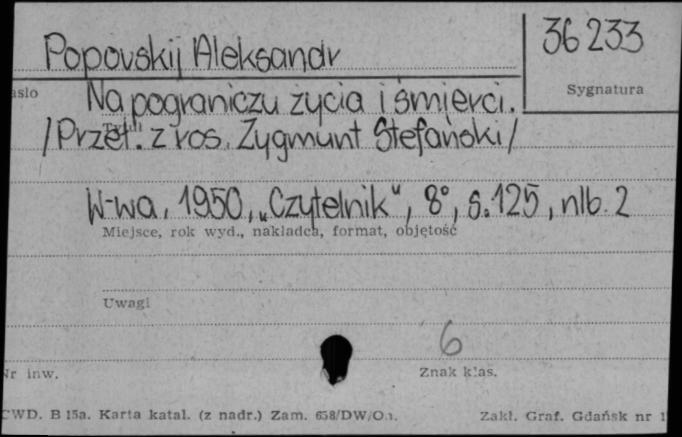 Popovskij Aleksandr
36 233
Sygnatura
asło
Na pograniczu życia i śmierci.
/Przeł. z ros. Zygmunt Stefański/
W-wa, 1950, „Czytelnik", 8°, s. 125, nlb. 2
Miejsce, rok wyd., nakładca, format, objętość
Uwagi
6
Nr inw.
Znak klas.
CWD. B 15a. Karta katal. (z nadr.) Zam. 658/DW/O.
Zakł. Graf. Gdańsk nr 1